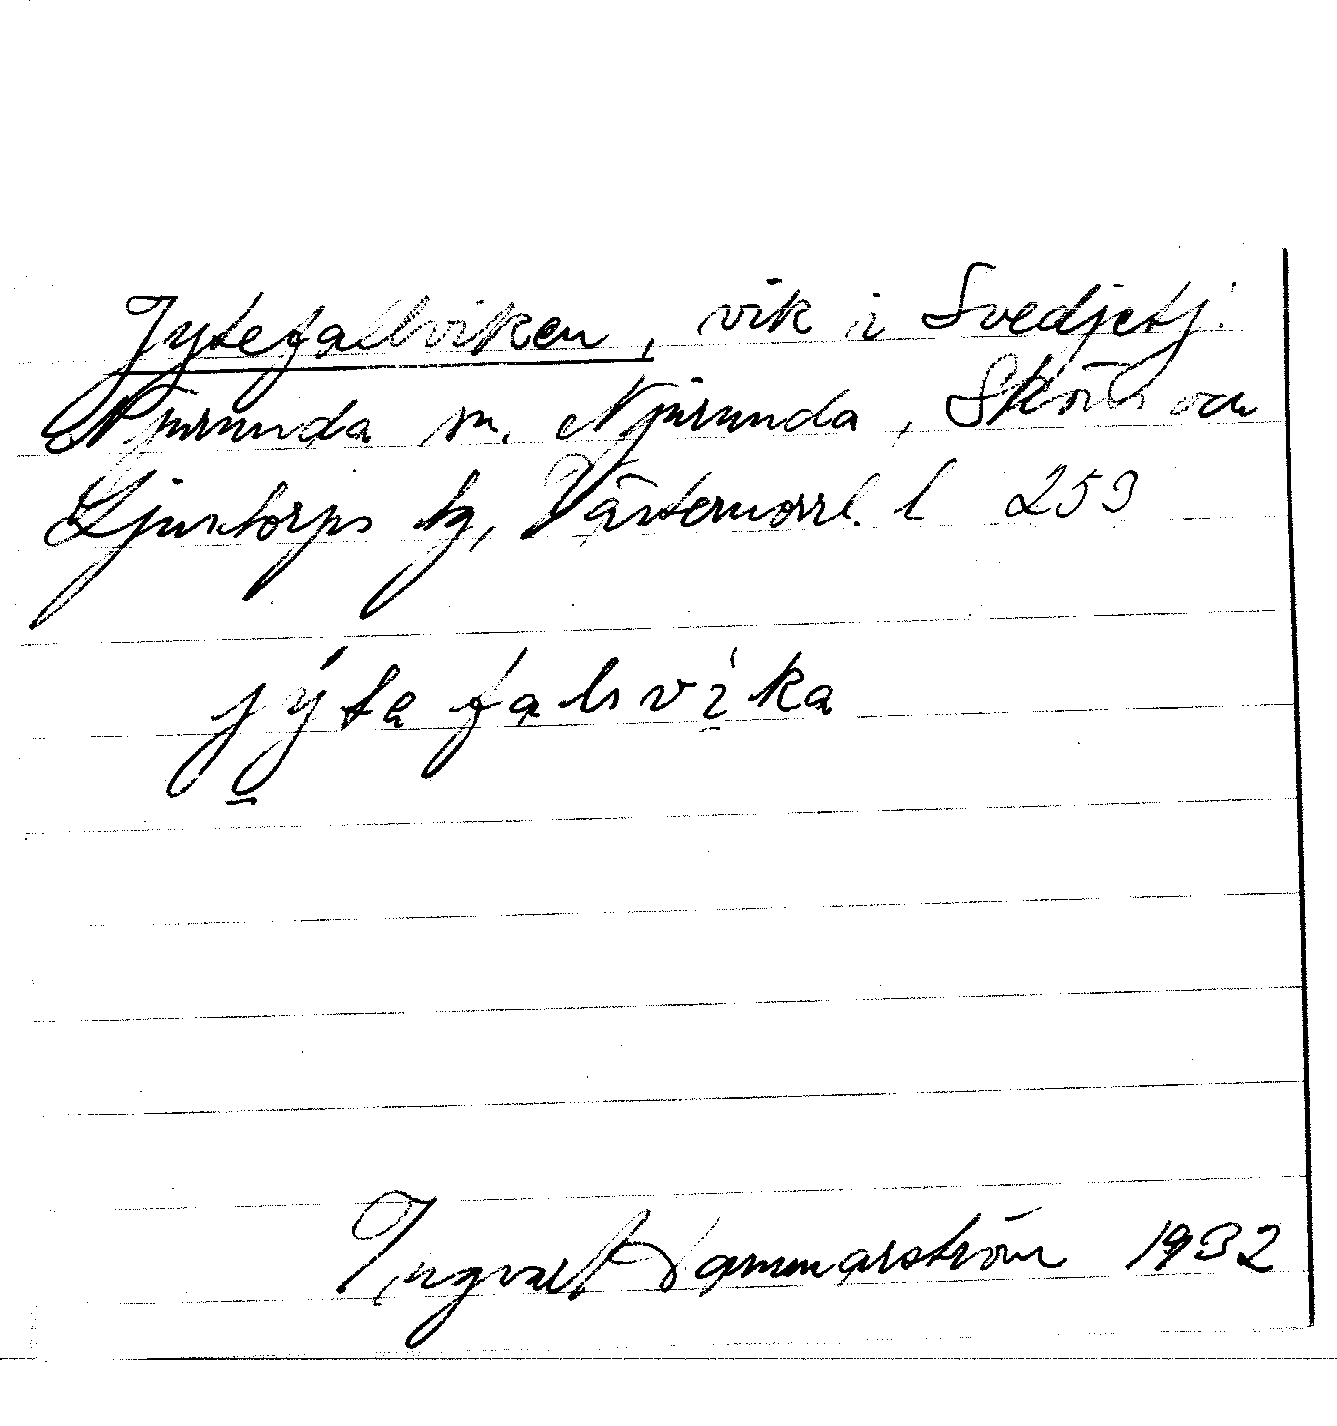 Jytefallviken, vik i Svedjetj.
Njurunda sn. Njurunda, Sköns och
Ljustorps tg, Västernorrl. l 253
jýtafalsvìka
Ingvar Hammarström 1932